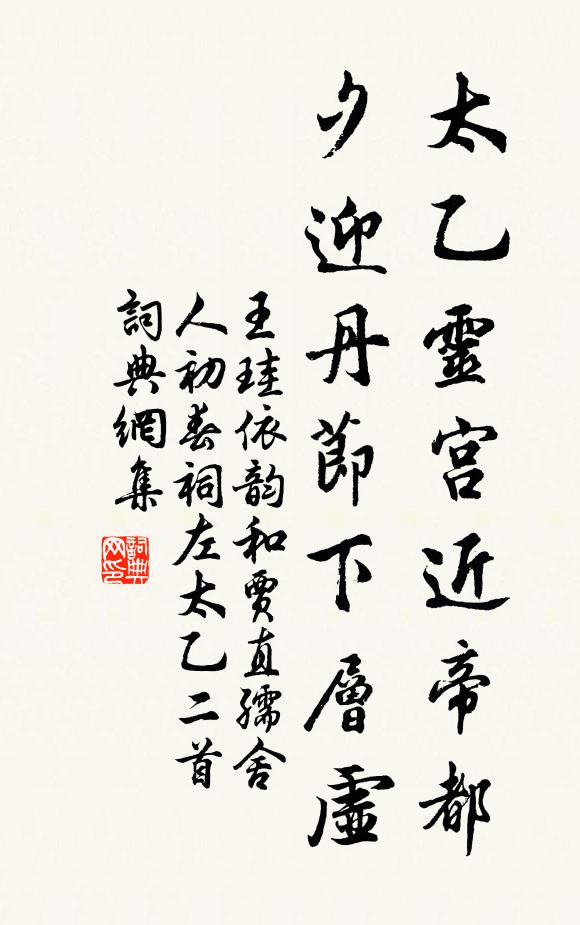 太乙靈宮近帝都
夕迎丹節下層虛
王珪依韵和賈直孺舍
人初春祠左太乙二首
詞典網集
詞典网印